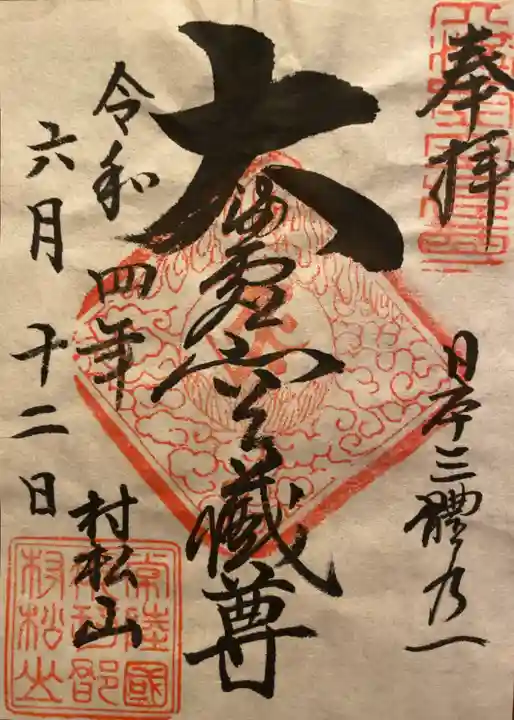 奉拝
日本三體乃一
大満虚空蔵尊
令和四年
六月十二日
村松山
常陸國
村松山